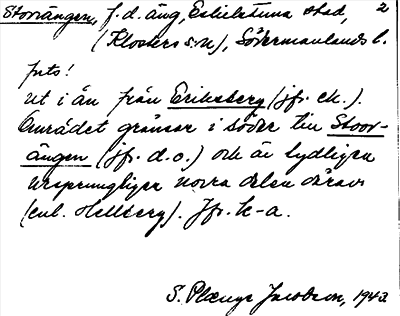 Storängen, f.d. äng, Eskilstuna stad, 2
(Klosters sn), Södermanlands l.
Juts!
ut i ån från Eriksberg (jfr ek.).
Området gränsar i söder till Stoor-
ängen (jfr d.o.) och är tydligen
ursprungligen norra delen därav
(enl. Hellberg). Jfr k-a.
S. Plænge Jacobson, 1943.